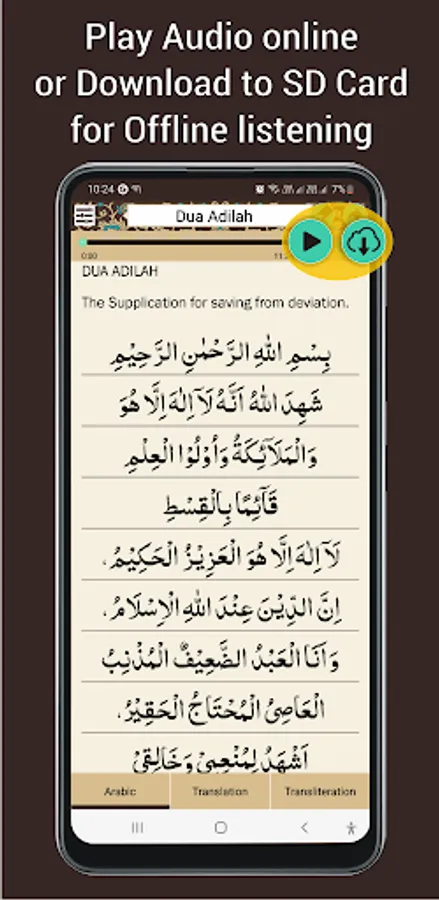 Play Audio online
or Download to SD Card
for Offline listening
10:24
7%
Dua Adilah
0:00
DUA ADILAH
The Supplication for saving from deviation.
بِسْمِ اللهِ الرَّحْمٰنِ الرَّحِيْمِ
شَهِدَ اللهُ اَنَّهُ لَاۤ اِلٰهَ اِلَّا هُوَ
وَالْمَلَآئِكَةُ وَاُوْلُوْا الْعِلْمِ
قَآئِمًا بِالْقِسْطِ
لَاۤ اِلٰهَ اِلَّا هُوَ الْعَزِيْزُ الْحَكِيْمُ،
اِنَّ الدِّيْنَ عِنْدَ اللهِ الْاِسْلَامُ،
وَ اَنَا الْعَبْدُ الضَّعِيْفُ الْمُذْنِبُ
الْعَاصِىُ الْمُحْتَاجُ الْحَقِيْرُ،
اَشْهَدُ لِمُنْعِمِىْ وَخَالِقِىْ
Arabic
Translation
Transliteration